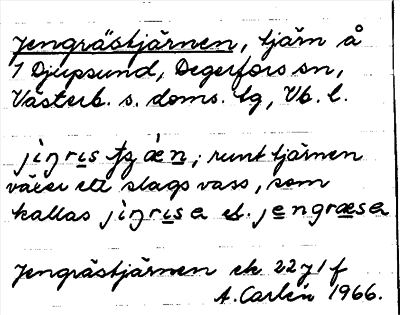 Jengrästjärnen, tjärn å
1 Djupsund, Degerfors sn,
Västerb. s. doms. lg, Vb. l.
jìŋris tʃæ̀n; runt tjärnen
växer ett slags vass, som
kallas jìŋrisa el. jengræsa
Jengrästjärnen ek 22 J 1 f
A. Carlén 1966.